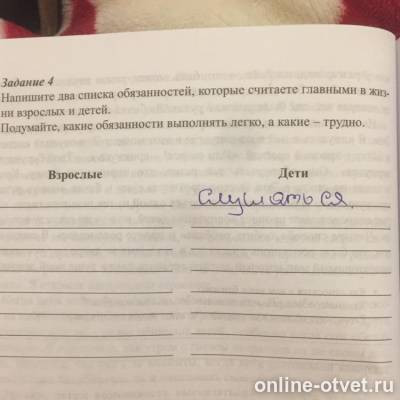 Задание 4
Напишите два списка обязанностей, которые считаете главными в жиз-
ни взрослых и детей.
Подумайте, какие обязанности выполнять легко, а какие – трудно.
Взрослые Дети
слушаться.
online-otvet.ru